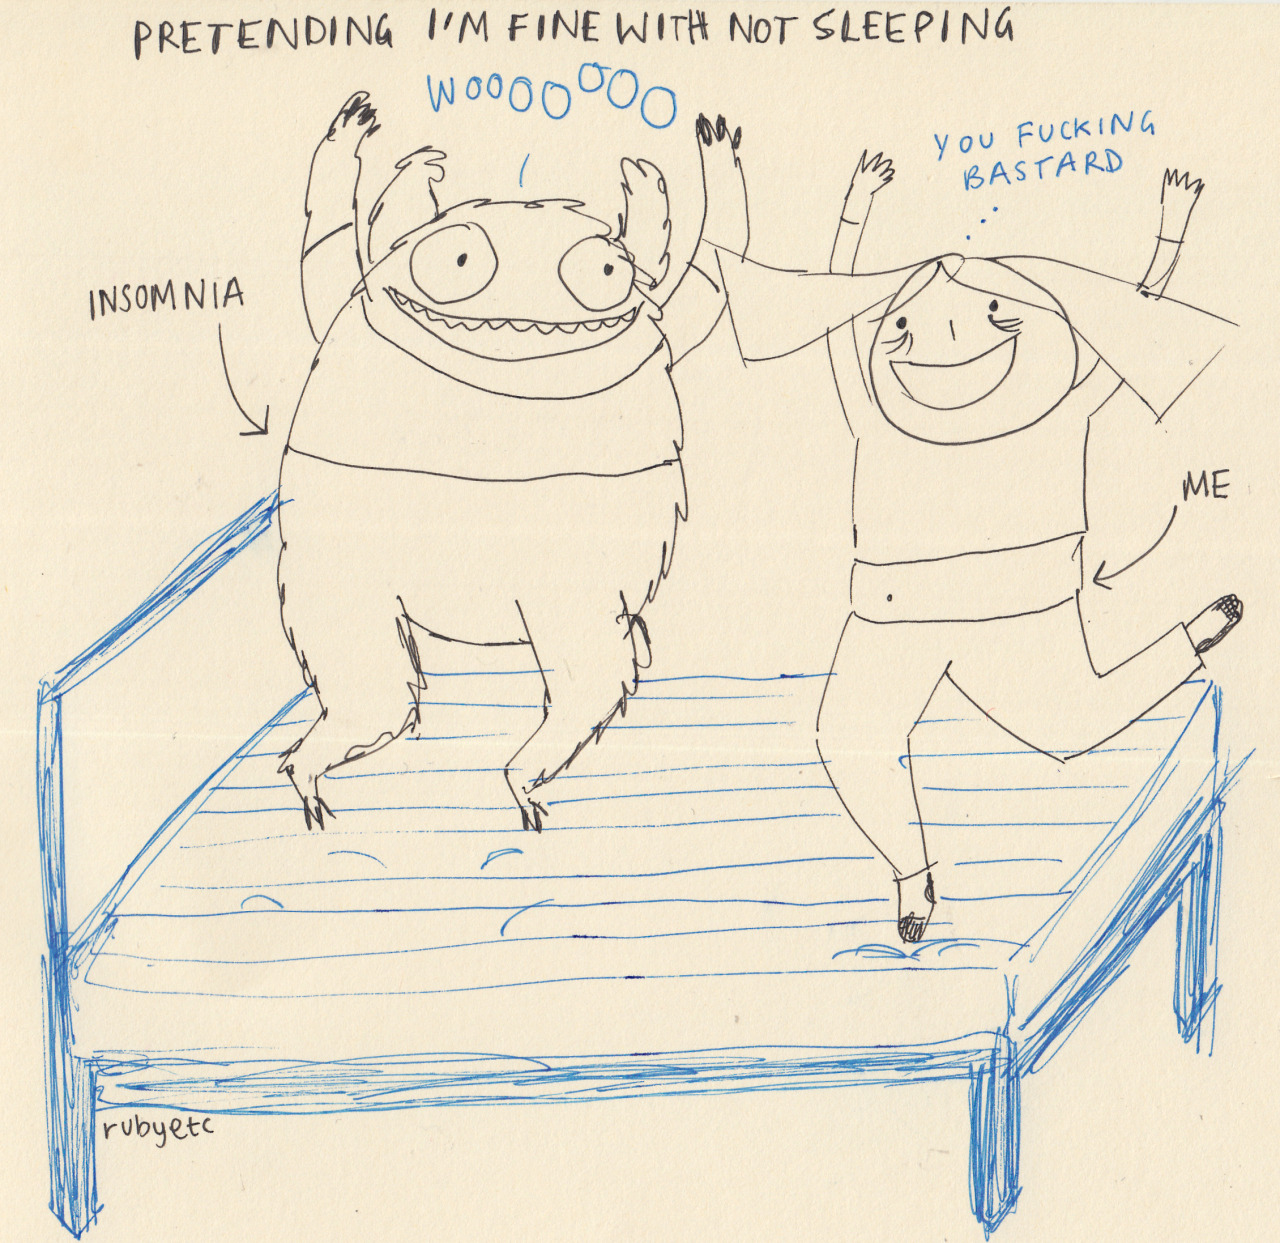 PRETENDING I'M FINE WITH NOT SLEEPING
WOOOOOOO
YOU FUCKING
BASTARD
INSOMNIA
ME
rubyetc